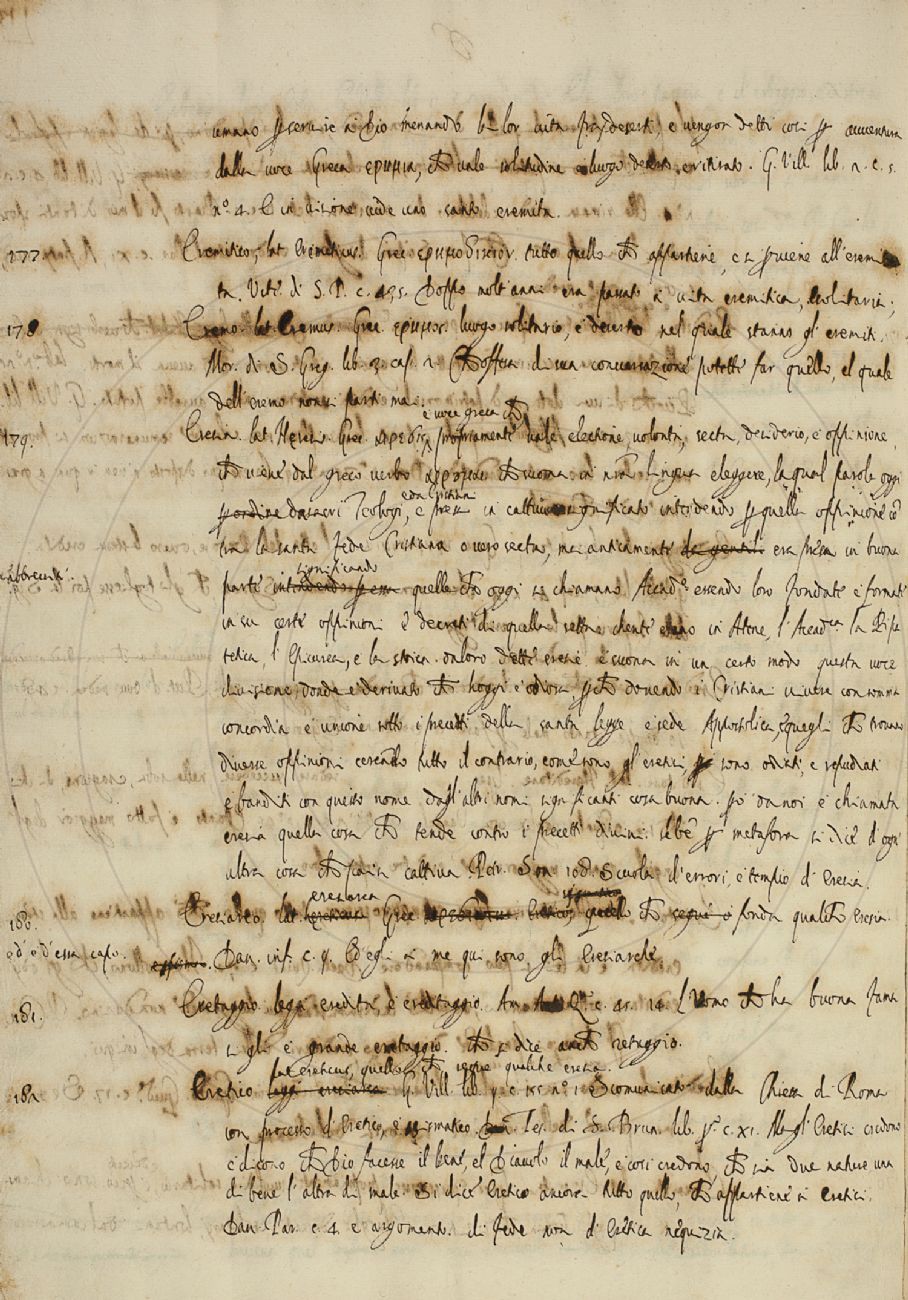 umano p servire a Dio menando la lor vita pe deserti e vengon detti così p avventura
dalla voce Greca ερημια, che vale solitudine o luogo deserto, e ritirato. G. Vill. lib. 1. c. 5.
nº 4. E in visione vide uno santo eremita.
177 Eremitico, lat. Eremiticus. Grec. tutto quello che appartiene, e si conviene all'eremi
ta. Vit. di S. P. c. 435. Doppo molt'anni era passato a vita eremitica, e solitaria.
178 Eremo. lat. Eremus. Grec. ερημος. luogo solitario, e deserto nel quale stanno gl'eremiti.
Mor. di S. Greg. lib. 3. cap. 2. Ch'offesa di sua conversazione potette far quello, el quale
dell'eremo non si partì mai.
è voce greca che
179. Eresia. lat. Heresis. Grec. αιρεσις, propriamente vale elezione, volontà, setta, desiderio, e oppinione,
che viene dal greco verbo che suona in nra lingua eleggere, la qual parola oggi
e da Cristiani
da sacri Teologi, e presa in cattivo significato intendendo p quella oppinione cō
tra la santa fede Cristiana o vero setta, ma anticamente da gentili era presa in buona
significando
parte intendendo p essa quelle che oggi si chiamano Accade essendo loro fondate e formate
in su certe oppinioni e decreti di quella setta chente erano in Atene, l'Accad.ca la Pipa
tetica, l'Epicurea, e la stoica. da loro dette eresie e suona in un certo modo questa voce
divisione, donde è derivato che hoggi è odiosa, p che dovendo i Cristiani vivere con somma
concordia e unione sotto i precetti della santa legge e sede Appostolica, e quegli che tenono
diverse oppinioni cercando tutto il contrario, come sono gl'eretici, sono odiati, e refudiati
e banditi con questo nome dagl'altri nomi significanti cosa buona. da noi è chiamata
eresia quella cosa che tende contro i precetti divini. se bē p metafora si dice d'ogni
altra cosa che sia cattiva Petr. Son. 108. Scuola d'errori, e tempio d'Eresia.
eresiarca
180. Eresiarco. lat. Grec. quello che segue o fonda qualche eresia.
ed è d'essa capo.
Dan. inf. c. 9. Ed egli a me qui sono gli Eresiarche.
181. Eretaggio. leggi eredità, e ereditaggio. Am. c. 41. 14. L'Uomo che ha buona fama
si gli è grande eretaggio. che si dice anche retaggio.
lat. Ereticus, quello che segue qualche eresia.
182 Eretico leggi eresiarca G. Vill. lib. 9. c. nº 1. Scomunicato dalla Chiesa di Roma
con processo d'Eretico, e sismatico. Tes. di S. Brun. lib. pº c. XI. Ma gl'Eretici credono
e dicono che Dio facesse il bene, el Diavolo il male, e così credono, che sia due nature una
di bene l'altra di male. Si dice Eretico ancora tutto quello, che appartiene a eretici.
Dan. Par. c. 4. e argomento di fede non d'Eretica nequizia.